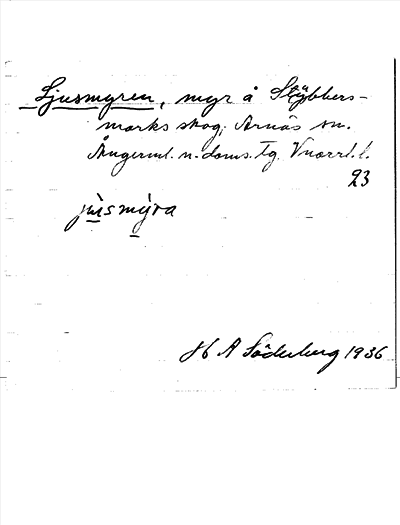 Ljusmyren, myr å Stybbers-
marks skog, Arnäs sn.
Ångerml. n. doms. tg. Vnorrl. l.
23
jùsmỳra
H A Söderberg 1936